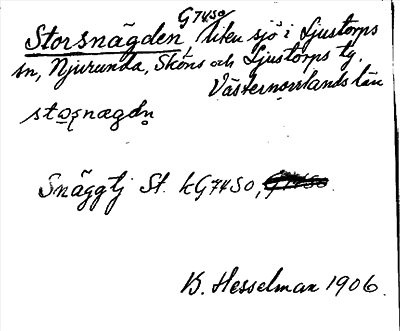 G7450
Storsnägden, liten sjö i Ljustorps
sn, Njurunda, Sköns och Ljustorps tg,
Västernorrlands län
Snäggtj St. kG7450,
B. Hesselman 1906.